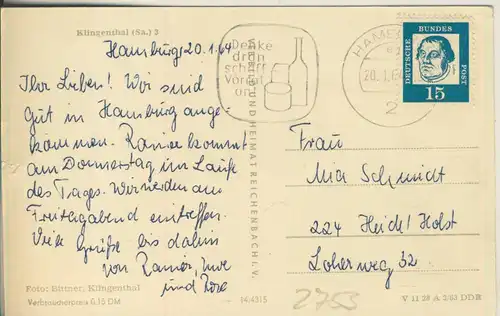 Klingenthal (Sa.) 3
Hamburg, 20.1.64
Ihr Lieben! Wir sind
gut in Hamburg ange-
kommen. Rainer kommt
am Donnerstag im Laufe
des Tages. Wir werden am
Freitagabend eintreffen.
Viele Grüße bis dahin
von Rainer, Uwe
und Rose
Foto: Bittner, Klingenthal
Verbraucherpreis 0,15 DM
14/4315
VERLAG BILD UND HEIMAT REICHENBACH I. V.
Denke
dran
schaff
Vorrat
an
HAMB
20.1.64
2
DEUTSCHE
BUNDES
POST
15
Frau
Mia Schmidt
224 Heide/Holst
Loherweg 32
2753
V 11 28 A 2/63 DDR